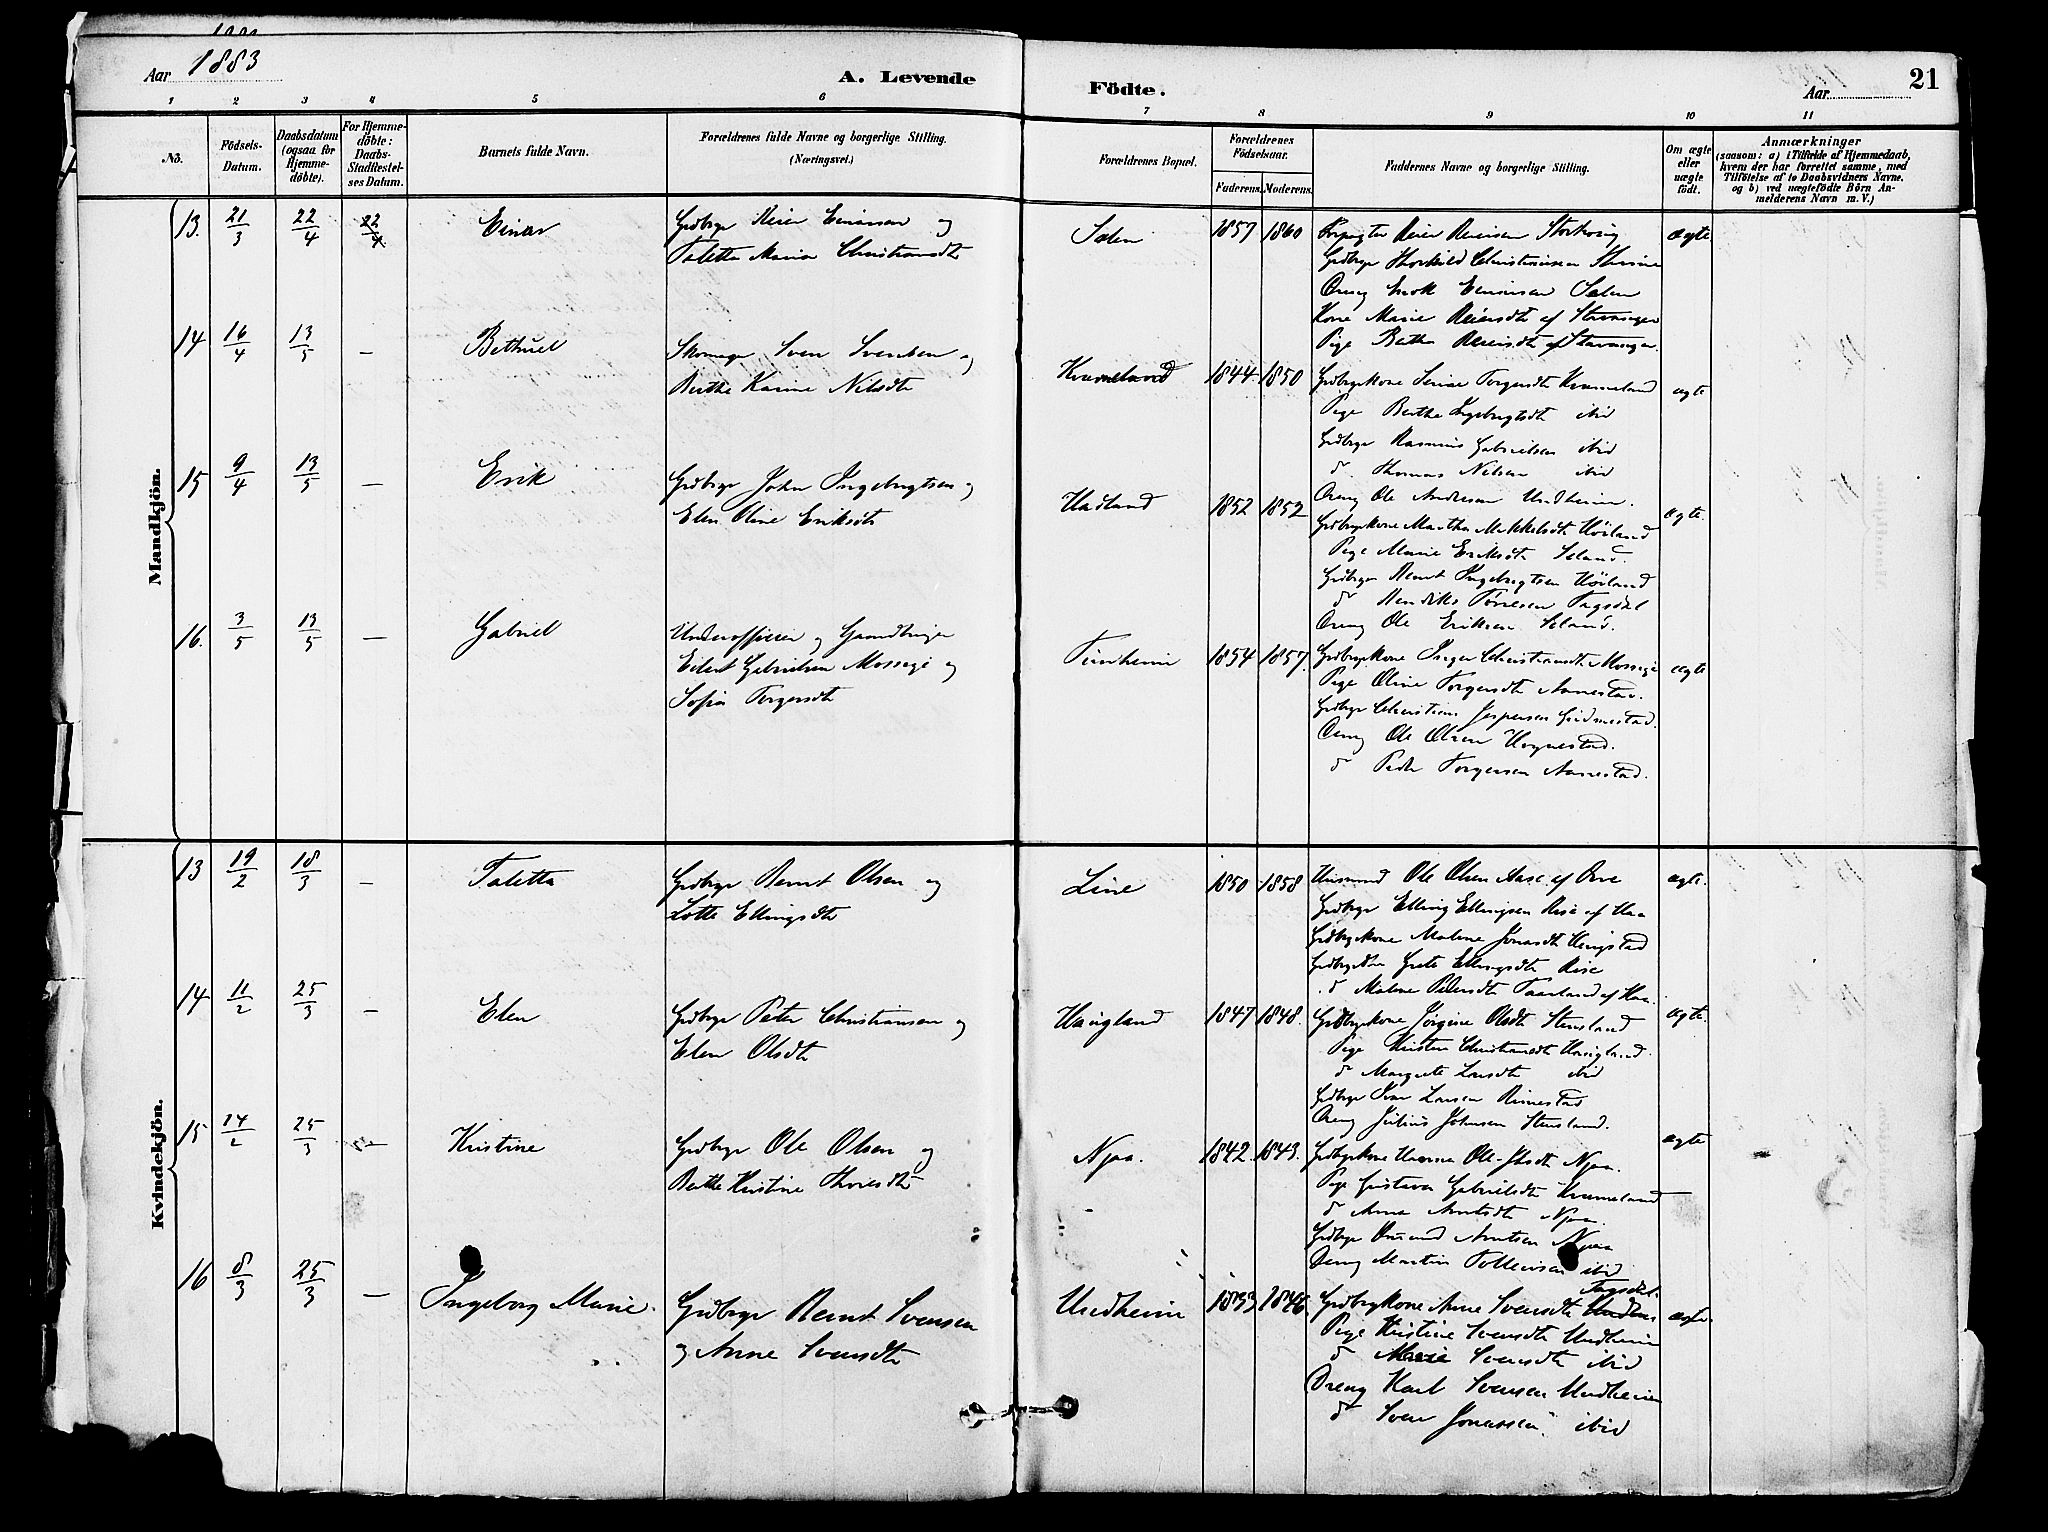 Aar 1883
A. Levende
Födte.
Aar
21
1 2 3 4 5 6 7 8 9 10 11
No.
Födsels-Datum.
Daabsdatum (ogsaa for Hjemmedöbte).
For Hjemmedöbte: Daabs-Stadfæstelses Datum.
Barnets fulde Navn.
Forældrenes fulde Navne og borgerlige Stilling. (Næringsvei.)
Forældrenes Bopæl.
Forældrenes Födselsaar.
Faderens. Moderens.
Faddernes Navne og borgerlige Stilling.
Om ægte eller uægte født.
Anmærkninger
(saasom: a) i Tilfælde af Hjemmedaab, hvem der har forrettet samme, med Tilföielse af to Daabsvidners Navne, og b) ved uægtefødte Börn Anmelderens Navn m. V.)
Mandkjön.
13. 21/3 22/4 22/4 Einar
Grdbrgr Reier Einarsen og
Taletta Maria Christiansdtr
Salen 1857 1860
Reier Reiersen
Grdbrgr Thorkild Christiansen
Dreng Enok Einarsen Salen
Kone Marie Reiersdtr af Stavanger
Pige Berthe Reiersdtr af Stavanger.
Ægte.
14 16/4 13/5 — Bethuel
Skomager Sven Svendsen og
Berthe Karine Nilsdtr
Kvameland 1844. 1850
Grdbrgrkone Serine Torgersdtr Kvameland
Pige Berthe Ingebrigtsdtr ibid
Grdbrgr Rasmus Gabrielsen ibid
d Thomas Nilsen ibid
Dreng Ole Andersen Undheim.
ægte
15 9/4 13/5 — Erik
Grdbrgr John Ingebrigtsen og
Elen Oline Eriksdtr
Hadland 1852 1852
Grdbrgrkone Martha Mikkelsdtr Höiland
Pige Marie Eriksdtr Seland.
Grdbrgr Bernt Ingebrigtsen Höiland
d Hendrik Törresen Tagsdal
Dreng Ole Eriksen Seland.
ægte.
16. 3/5 13/5 — Gabriel
Underofficer og Gaardbruger
Eilert Gabrielsen Mossige og
Sofia Torgersdtr
Tunheim 1854 1857.
Grdbrgrkone Inger Christiansdtr Mossige
Pige Oline Torgersdtr Aanestad.
Grdbrgr Christian Jespersen Gudmestad.
Dreng Ole Olsen Hognestad.
d Peder Torgersen Aanestad.
ægte
Kvindekjön.
13 19/2 18/3 — Taletta
Grdbrgr Bernt Olsen og
Lotte Ellingsdtr
Line 1850 1858
Husmand Ole Olsen Aase af Orre
Grdbrgr Elling Ellingsen Rise af Haa
Grdbrgrkone Malene Jonasdtr Haugstad
Grete Ellingsdtr Rise
d Malene Pedersdtr Taarland af Haa.
ægte.
14 11/2 25/3 — Elen
Grdbrgr Peter Christiansen og
Elen Olsdtr
Haugland 1847 1848.
Grdbrgrkone Jörgine Olsdtr Stensland
Pige Kristine Christiansdtr Haugland.
d Margrete Larsdtr ibid
Grdbrgr Ivar Larsen Rimestad
Dreng Julius Johnsen Stensland.
ægte.
15 14/2 25/3 — Kristine
Grdbrgr Ole Olsen og
Berthe Kristine Thoresdtr
Njaa. 1842. 1843.
Grdbrgrkone Hanna Ole-Jsdtr Njaa.
Pige Gustava Gabrielsdtr Kvameland
d Anna Arntsdtr Njaa.
Grdbrgr Omund Arntsen Njaa
Dreng Martin Tollefsen ibid
ægte
16 8/3 25/3 — Ingeborg Marie.
Grdbrgr Bernt Svensen
og Anne Svensdtr
Undheim 1833 1846.
Tagsdal.
Grdbrgrkone Anne Svensdtr Undheim
Pige Kristine Svensdtr Undheim
d Marie Svensdtr ibid
Dreng Karl Svensen Undheim
d Sven Jonassen ibid
ægte.